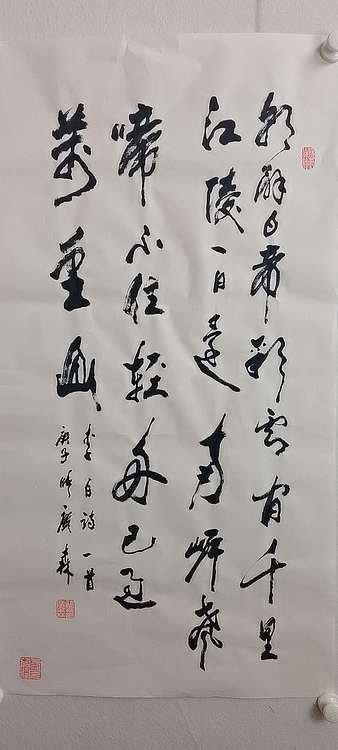 朝辭白帝彩雲間千里
江陵一日還兩岸
啼不住輕舟已過
萬重山
李白詩一首
庚子廣森